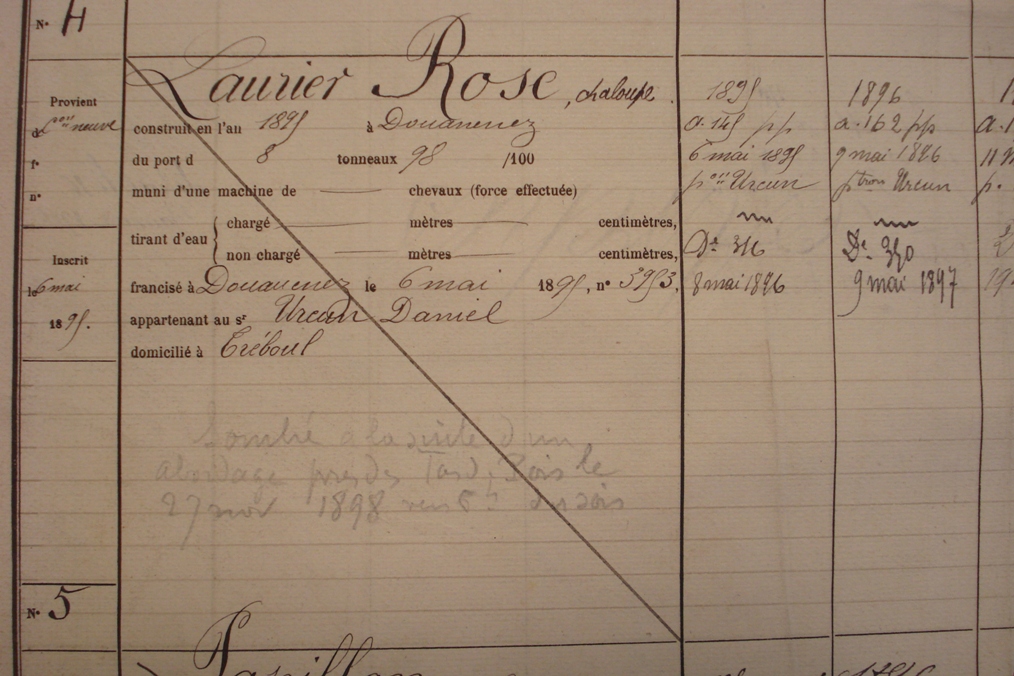 N° 4
Laurier Rose, chaloupe.
Provient
d con neuve
construit en l'an 1895 à Douarnenez
f°
du port d 8 tonneaux 98 /100
n°
muni d'une machine de chevaux (force effectuée)
tirant d'eau { chargé mètres centimètres,
non chargé mètres centimètres,
Inscrit
le 6 mai
1895.
francisé à Douarnenez le 6 mai 1895, n° 3953,
appartenant au sr Urcun Daniel
domicilié à Tréboul
Sombré à la suite d'un
abordage près des Bois le
27 nov 1898 vers 5h du soir
1895
a. 145 pp
6 mai 1895
pon Urcun
De 316
8 mai 1896
1896
a. 162 pp
9 mai 1896
ptron Urcun
De 390
9 mai 1897
N° 5
Papillon